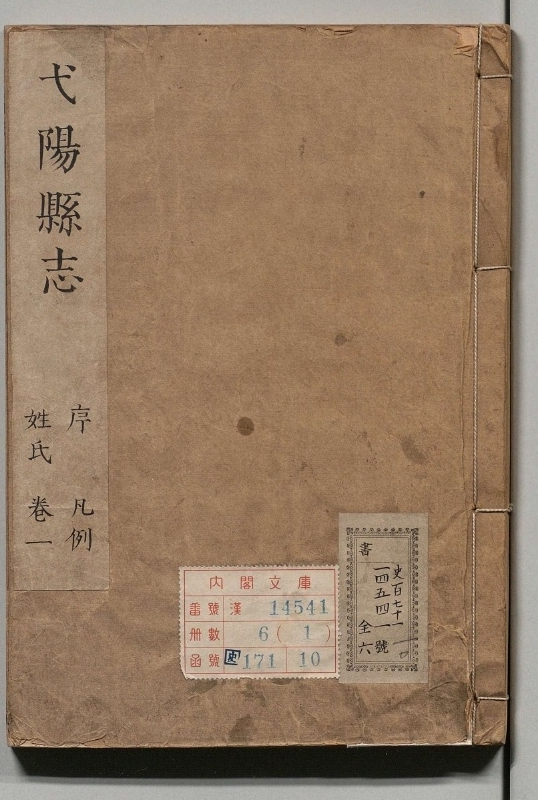 弋陽縣志
序 凡例
姓氏 卷一
內閣文庫
番號 漢 14541
冊數 6(1)
函號 史171 10
史百七十一
書 一四五四一號
全六